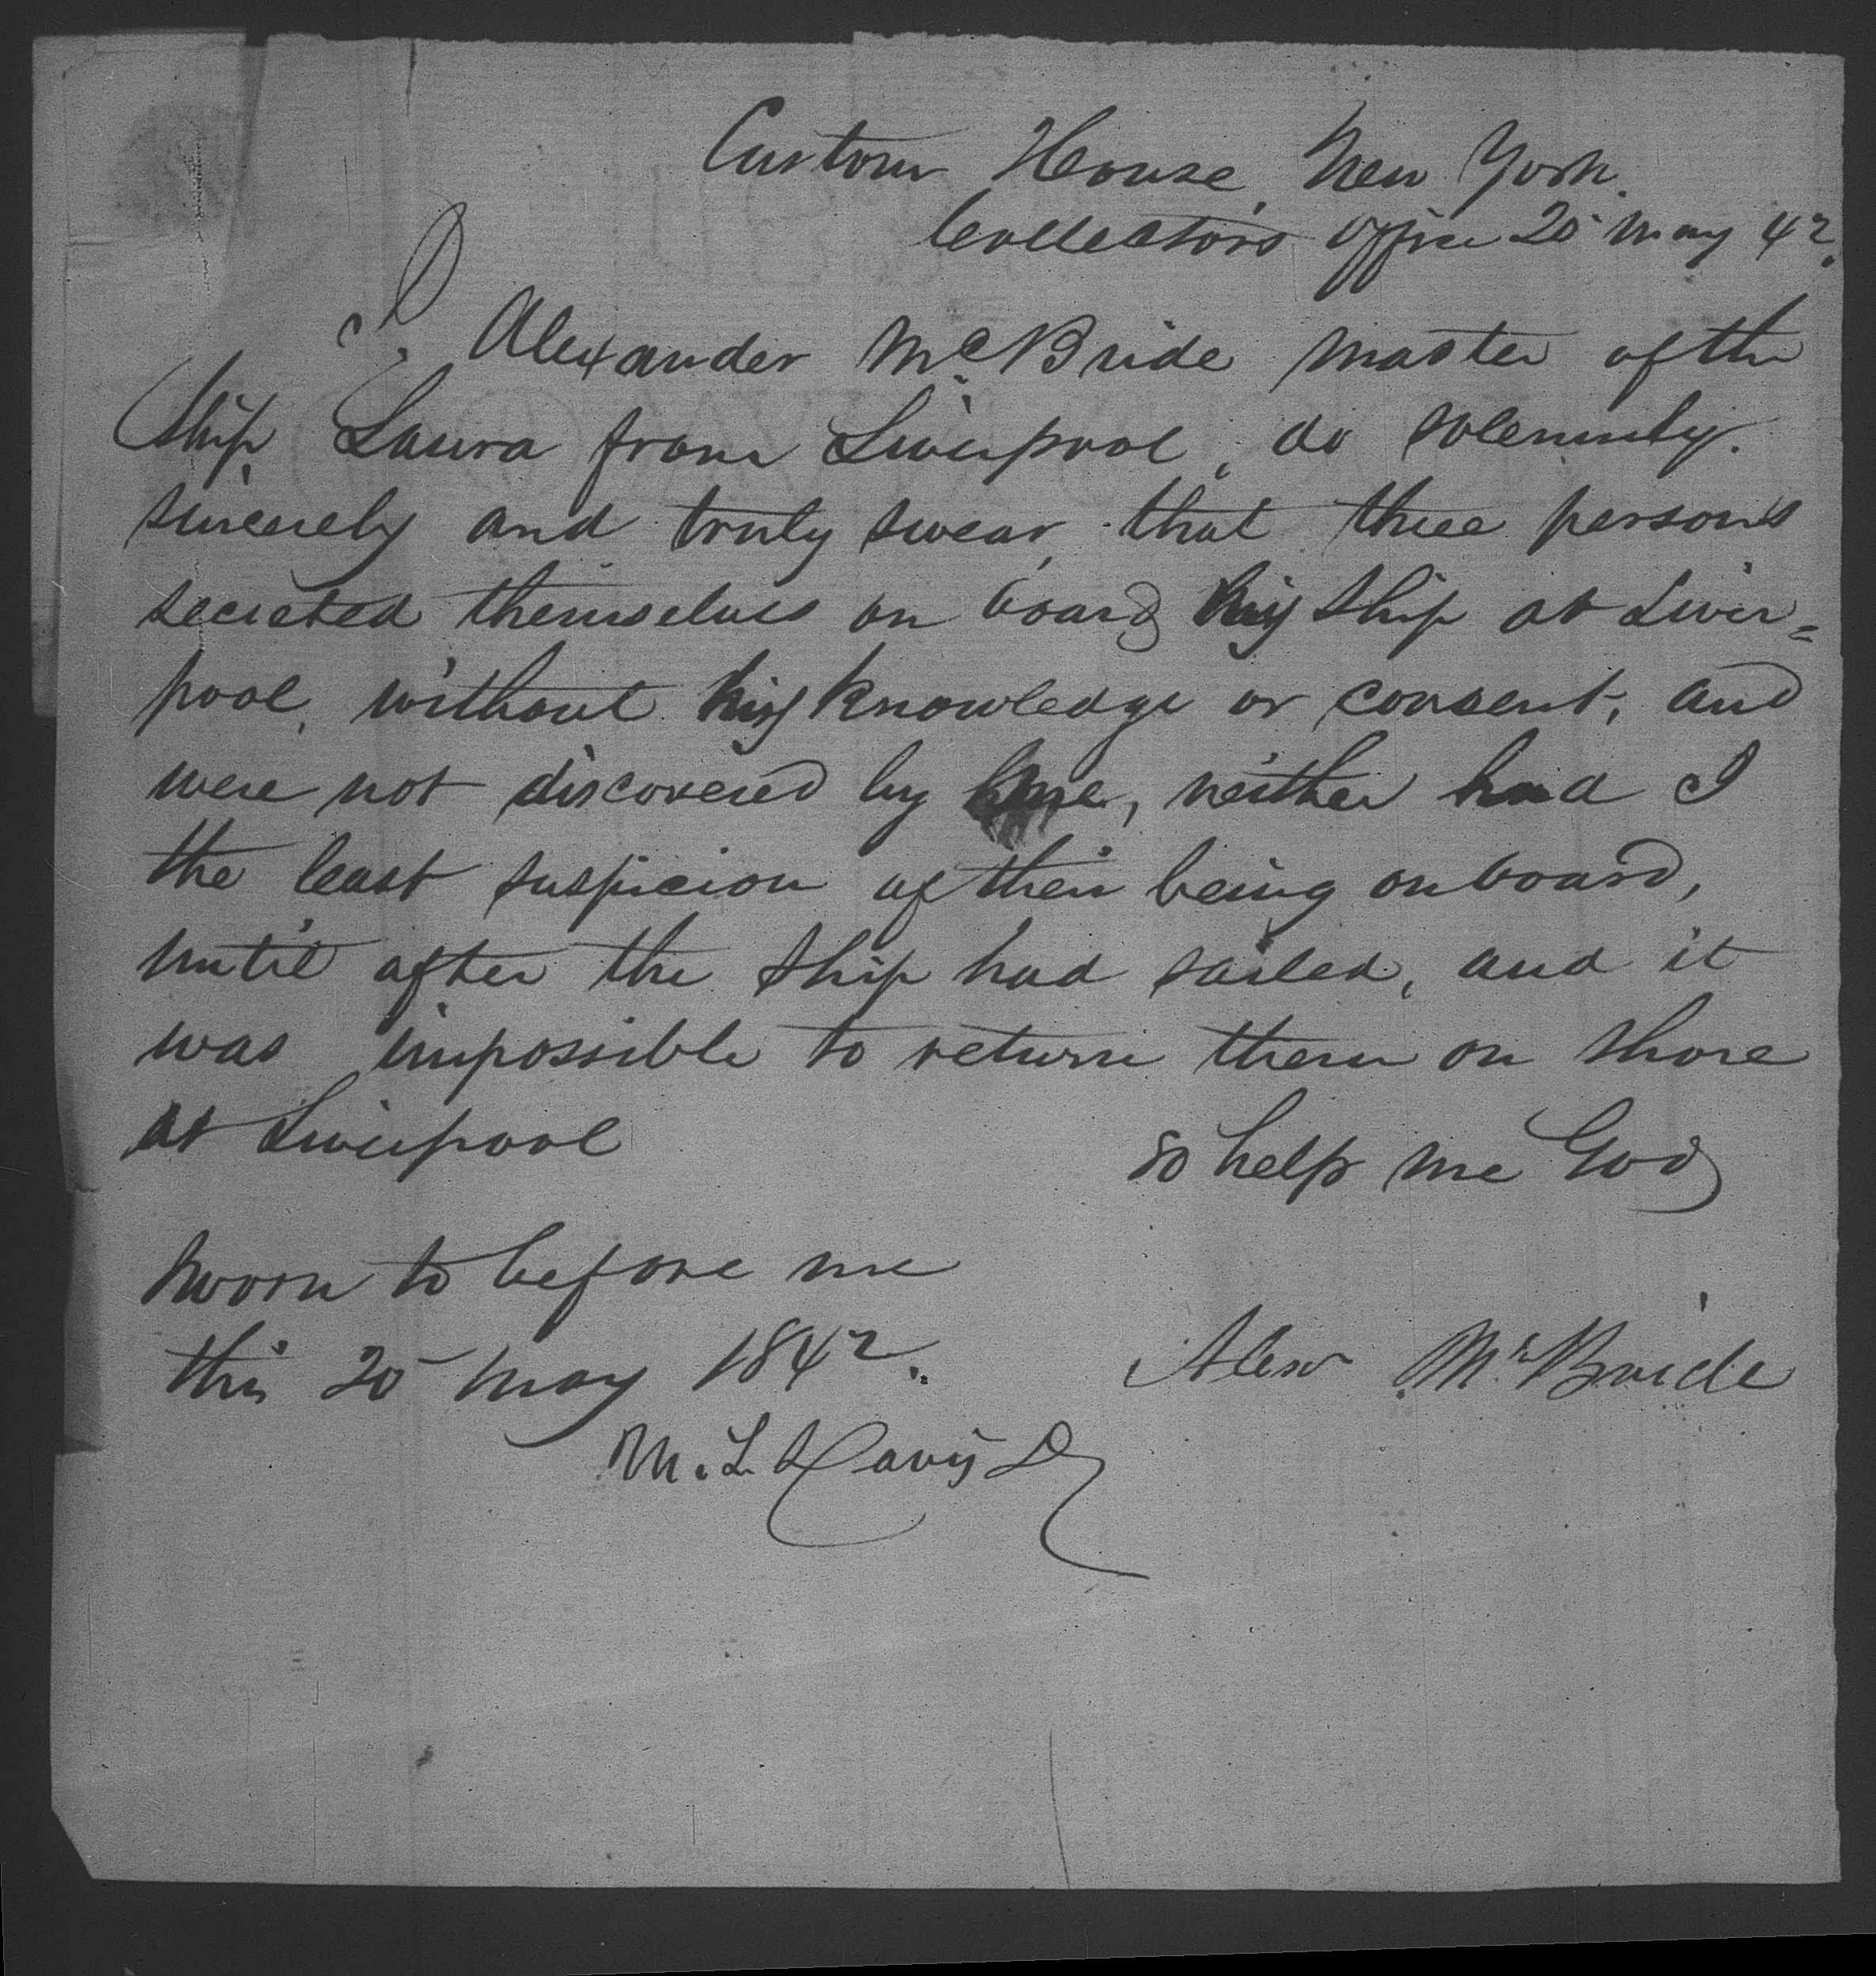 Custom House, New York.
Collectors Office 20 May 42.
I. Alexander McBride master of the
Ship Laura from Liverpool, do solemnly.
sincerely and truly swear, that three persons
secreted themselves on board my ship at Liver=
pool, without my knowledge or consent, and
were not discovered by me, neither had I
the least suspicion of their being on board,
until after the ship had sailed, and it
was impossible to return them on shore
at Liverpool
so help me God
Sworn to before me
this 20 May 1842.
Alexr McBride
M. L. Davis